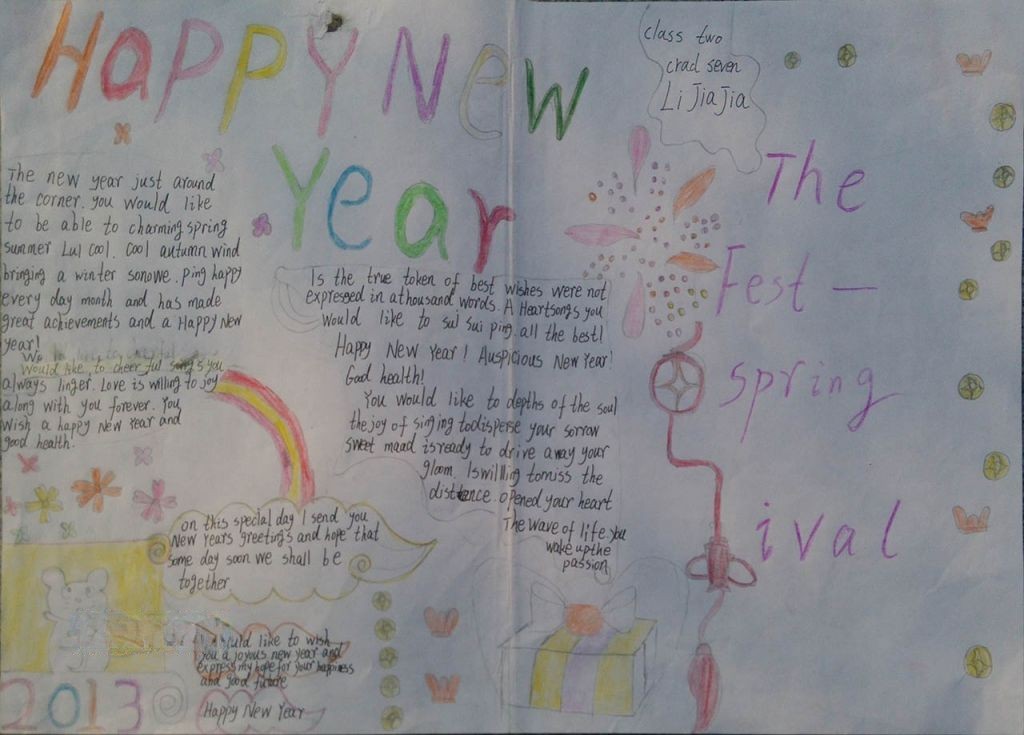 Happy New
Year
class two
crad seven
Li JiaJia
The
Fest —
spring
ival
The new year just around
the corner. you would like
to be able to charming spring
summer Lul cool. Cool autumn wind
bringing a winter sonowe. ping happy
every day month and has made
great achievements and a Happy New
year!
Would like to cheerful songs you
always linger. Love is willing to joy
along with you forever. You
wish a happy New Year and
good health.
Is the true token of best wishes were not
expresed in athousand words. A Heartsongs you
would like to sui sui ping all the best!
Happy New Year! Auspicious New Year!
Good health!
You would like to depths of the soul
the joy of singing todisperse your sorrow
sweet maad isready to drive away your
gloom. Iswillling tomiss the
distence. opened your heart
The wave of life. you
wake upthe
passion.
on this special day I send you
New Years greetings and hope that
some day soon we shall be
together
I would like to wish
you a joyous new year and
express my hope for your happiness
and good future
Happy New Year
2013